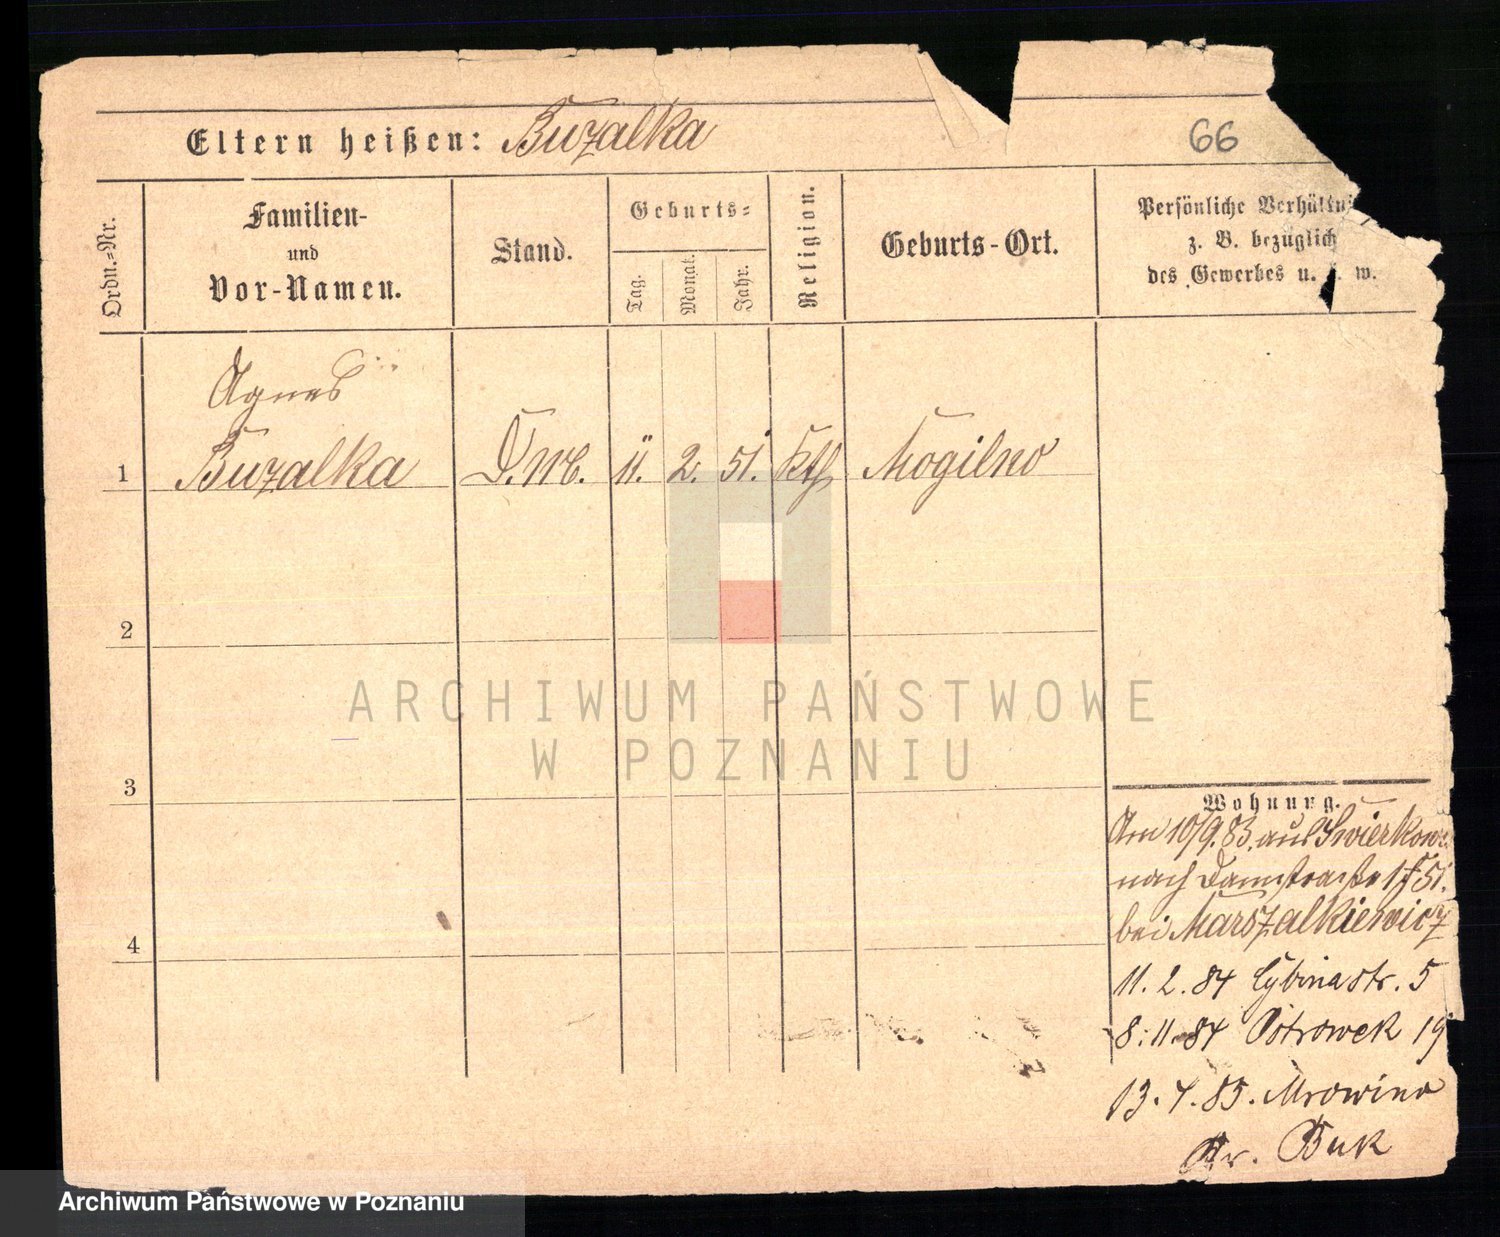 Eltern heißen: Buzalka
66
Ordn.-Nr.
Familien-
und
Vor-Namen.
Stand.
Geburts-
Tag.
Monat.
Jahr.
Religion.
Geburts-Ort.
Persönliche Verhältni
z. B. bezüglich
des Gewerbes u. s. w.
Agnes
1 Buzalka D.M. 11. 2. 51. Kth Mogilno
2
3
4
Wohnung.
Am 10/9.83. aus Swierkow
nach Dammstraße 51.
bei Marszalkiewicz
11. 2. 84 Cybinastr. 5
8. 11. 84 Ostrowek 19
13. 4. 85. Mrowino
Kr. Buk
ARCHIWUM PAŃSTWOWE
W POZNANIU
Archiwum Państwowe w Poznaniu